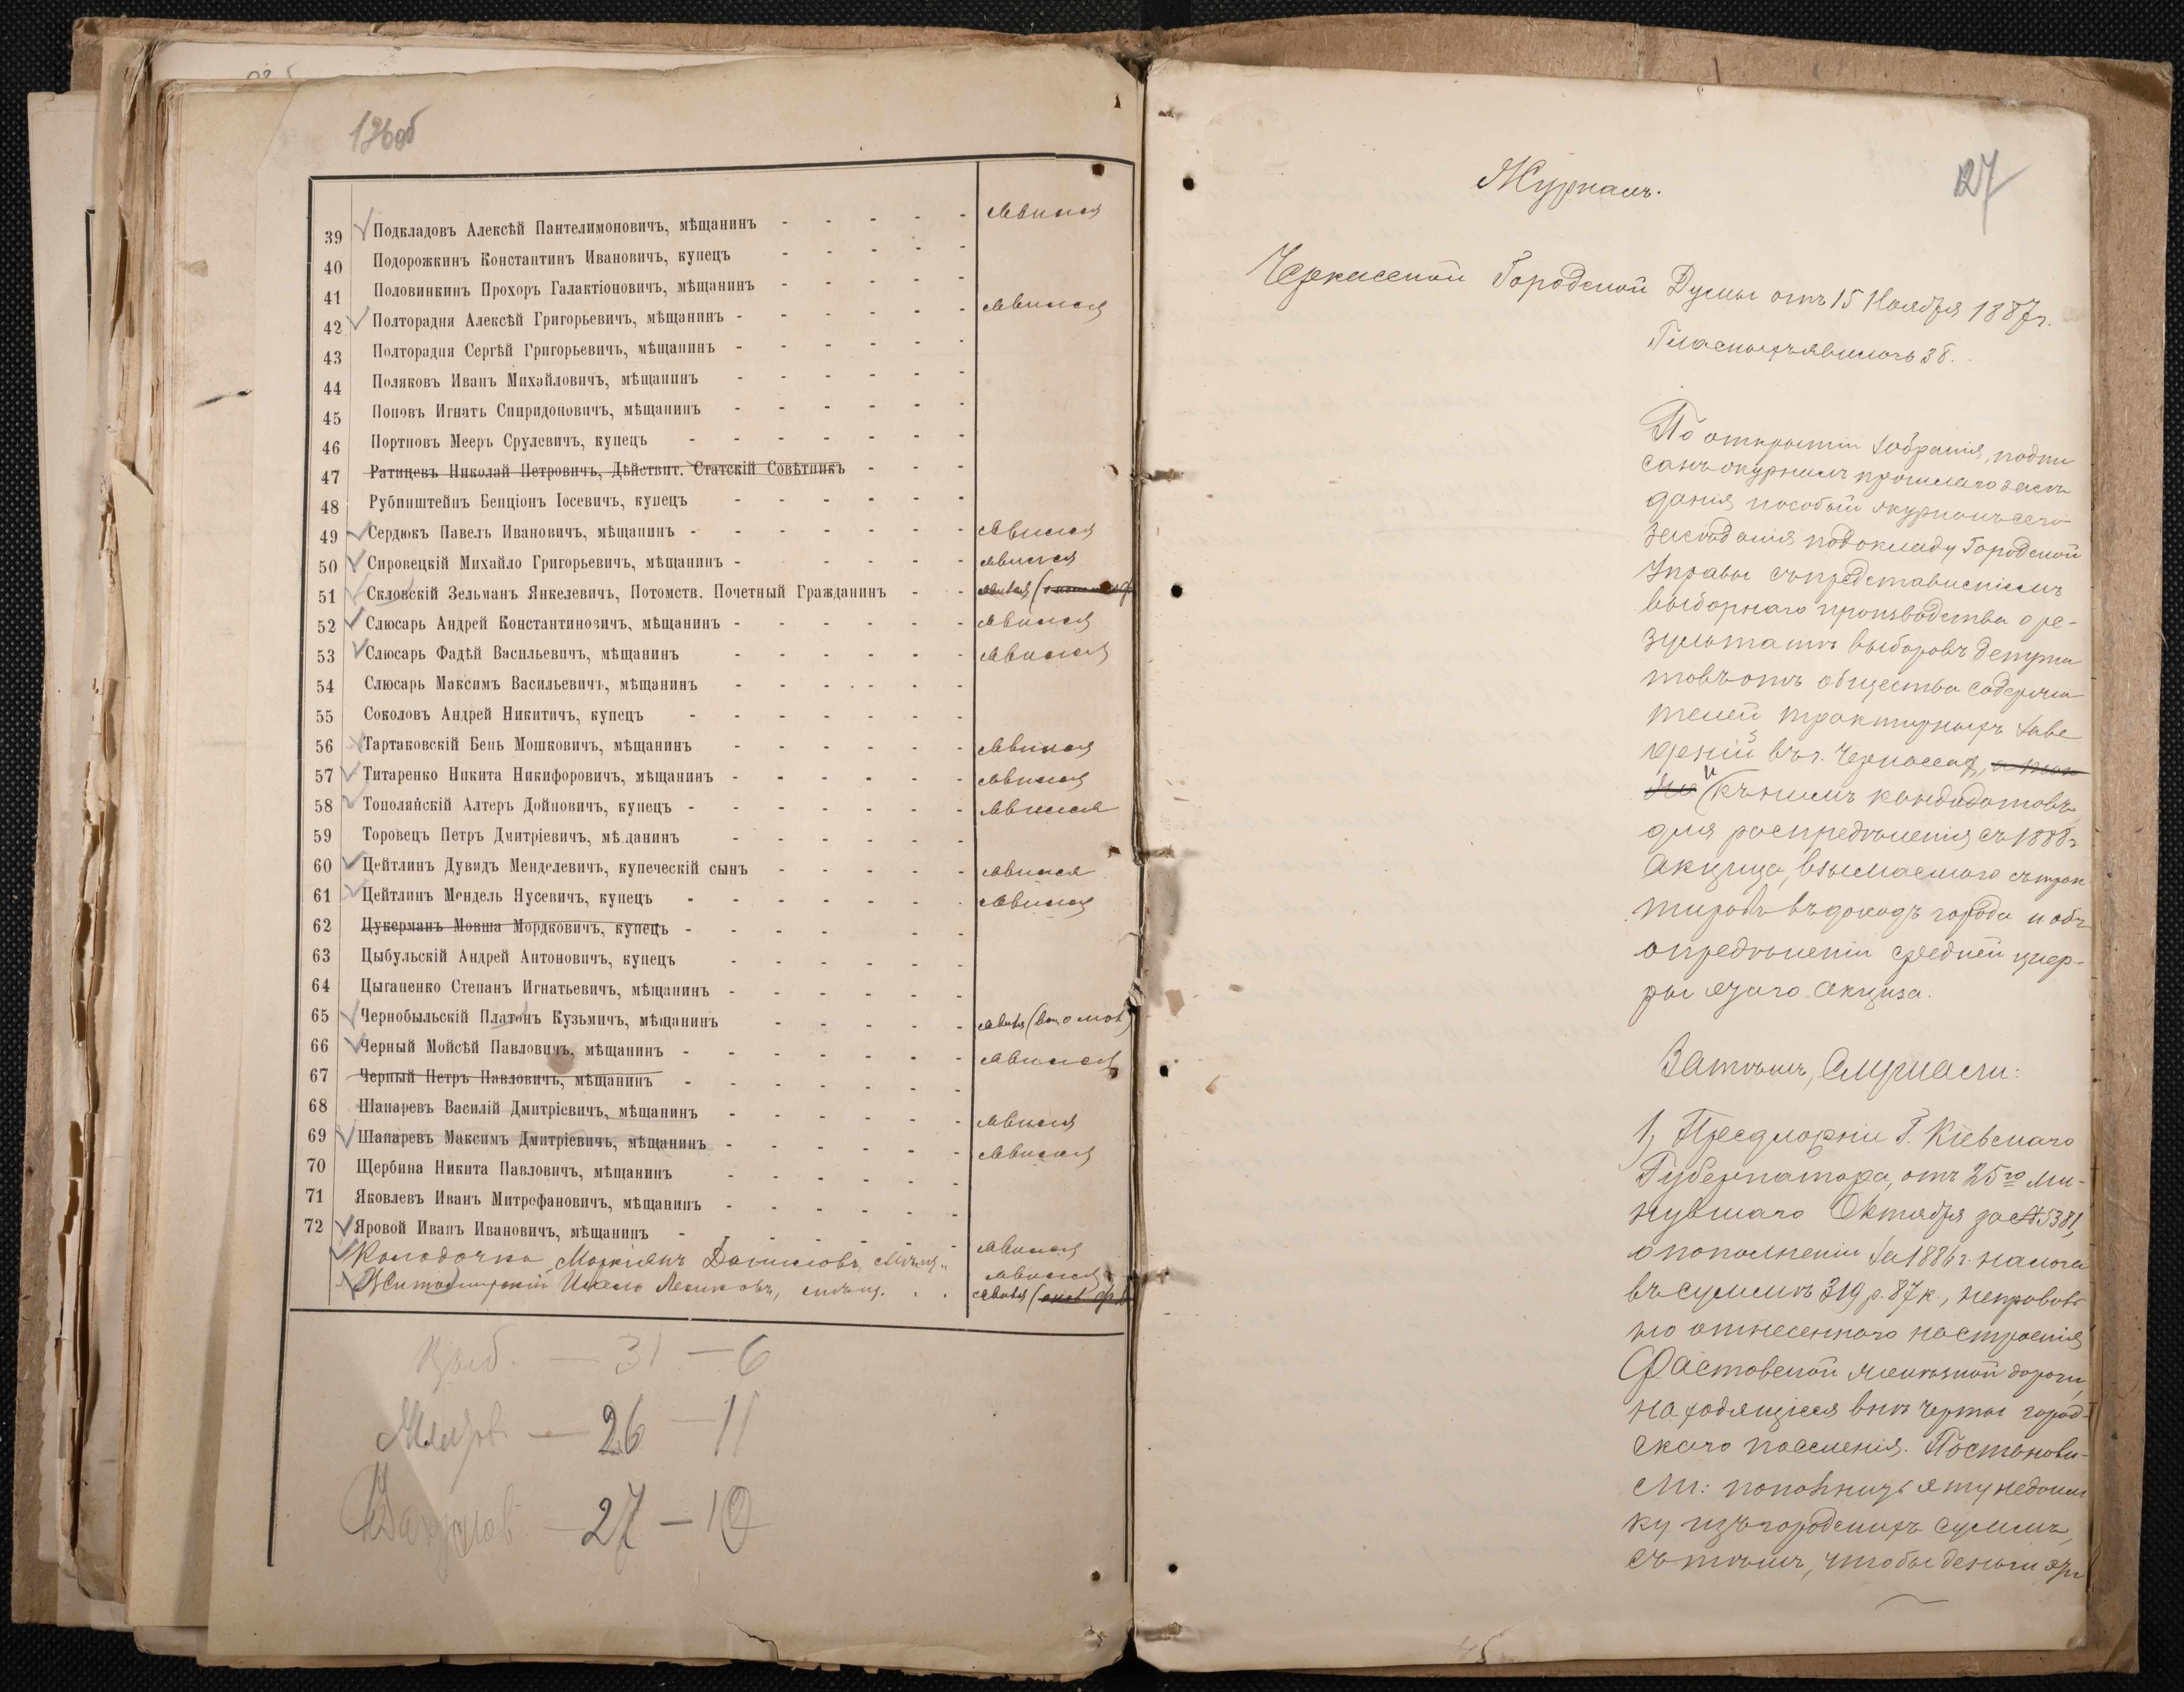 126об
39 Подкладовъ Алексѣй Пантелимоновичъ, мѣщанинъ - - - - - Явился
40 Подорожкинъ Константинъ Ивановичъ, купецъ - - - - -
41 Половинкинъ Прохоръ Галактіоновичъ, мѣщанинъ - - - - -
42 Полторадня Алексѣй Григорьевичъ, мѣщанинъ - - - - - - Явился
43 Полторадня Сергѣй Григорьевичъ, мѣщанинъ - - - - - -
44 Поляковъ Иванъ Михайловичъ, мѣщанинъ - - - - - -
45 Поповъ Игнатъ Спиридоновичъ, мѣщанинъ - - - - - -
46 Портновъ Мееръ Срулевичъ, купецъ - - - - - - -
47 Ратицевъ Николай Петровичъ, Дѣйствит. Статскій Совѣтникъ - - -
48 Рубинштейнъ Бенціонъ Іосевичъ, купецъ - - - - - -
49 Сердюкъ Павелъ Ивановичъ, мѣщанинъ - - - - - - - Явился
50 Сировецкій Михайло Григорьевичъ, мѣщанинъ - - - - - - Явился
51 Скловскій Зельманъ Янкелевичъ, Потомств. Почетный Гражданинъ - - явился
52 Слюсарь Андрей Константиновичъ, мѣщанинъ - - - - - - Явился
53 Слюсарь Фадѣй Васильевичъ, мѣщанинъ - - - - - - Явился
54 Слюсарь Максимъ Васильевичъ, мѣщанинъ - - - - - -
55 Соколовъ Андрей Никитичъ, купецъ - - - - - - -
56 Тартаковскій Бень Мошковичъ, мѣщанинъ - - - - - - Явился
57 Титаренко Никита Никифоровичъ, мѣщанинъ - - - - - - Явился
58 Тополянскій Алтеръ Дойновичъ, купецъ - - - - - - - Явился
59 Торовецъ Петръ Дмитріевичъ, мѣщанинъ - - - - - -
60 Цейтлинъ Дувидъ Менделевичъ, купеческій сынъ - - - - - явился
61 Цейтлинъ Мендель Нусевичъ, купецъ - - - - - - - Явился
62 Цукерманъ Мовша Мордковичъ, купецъ - - - - - -
63 Цыбульскій Андрей Антоновичъ, купецъ - - - - - -
64 Цыганенко Степанъ Игнатьевичъ, мѣщанинъ - - - - - -
65 Чернобыльскій Платонъ Кузьмичъ, мѣщанинъ - - - - - явился
66 Черный Мойсѣй Павловичъ, мѣщанинъ - - - - - - - Явился
67 Черный Петръ Павловичъ, мѣщанинъ - - - - - - -
68 Шапаревъ Василій Дмитріевичъ, мѣщанинъ - - - - - - Явился
69 Шапаревъ Максимъ Дмитріевичъ, мѣщанинъ - - - - - - Явился
70 Щербина Никита Павловичъ, мѣщанинъ - - - - - -
71 Яковлевъ Иванъ Митрофановичъ, мѣщанинъ - - - - - -
72 Яровой Иванъ Ивановичъ, мѣщанинъ - - - - - - Явился
Колодочка Маркіянъ Даниловъ, мѣщ. явился
Житомирскій Лейковъ, мѣщ. явился
31 — 6
26 — 11
27 — 10
127
Журналъ.
Черкасской Городской Думы отъ 15 Ноября 1887 г.
Гласныхъ явилось 38.
По открытіи Собранія, подпи
санъ журналъ прошлаго засѣ
данія, и особый журналъ сего
засѣданія по докладу Городской
Управы съ представленіемъ
выборнаго производства о ре-
зультатѣ выборовъ депута
товъ отъ общества содержа
телей трактирныхъ заве
деній въ г. Черкассахъ,
и къ нимъ кандидатовъ
для распредѣленія съ 1888 г.
акциза, взымаемаго съ трак
тировъ въ доходъ города и объ
опредѣленіи средней циф-
ры этого акциза.
Затѣмъ, Слушали:
1, Предложеніе Г. Кіевскаго
Губернатора, отъ 25го ми-
нувшаго Октября за № 5381,
о пополненіи за 1886 г. налога
въ суммѣ 319 р. 87 к., неправиль
но отнесеннаго на строенія
Фастовской желѣзной дороги,
находящіеся внѣ черты город-
скаго поселенія. Постанови-
ли: пополнить эту недоим
ку изъ городскихъ суммъ,
съ тѣмъ, чтобы деньги эти